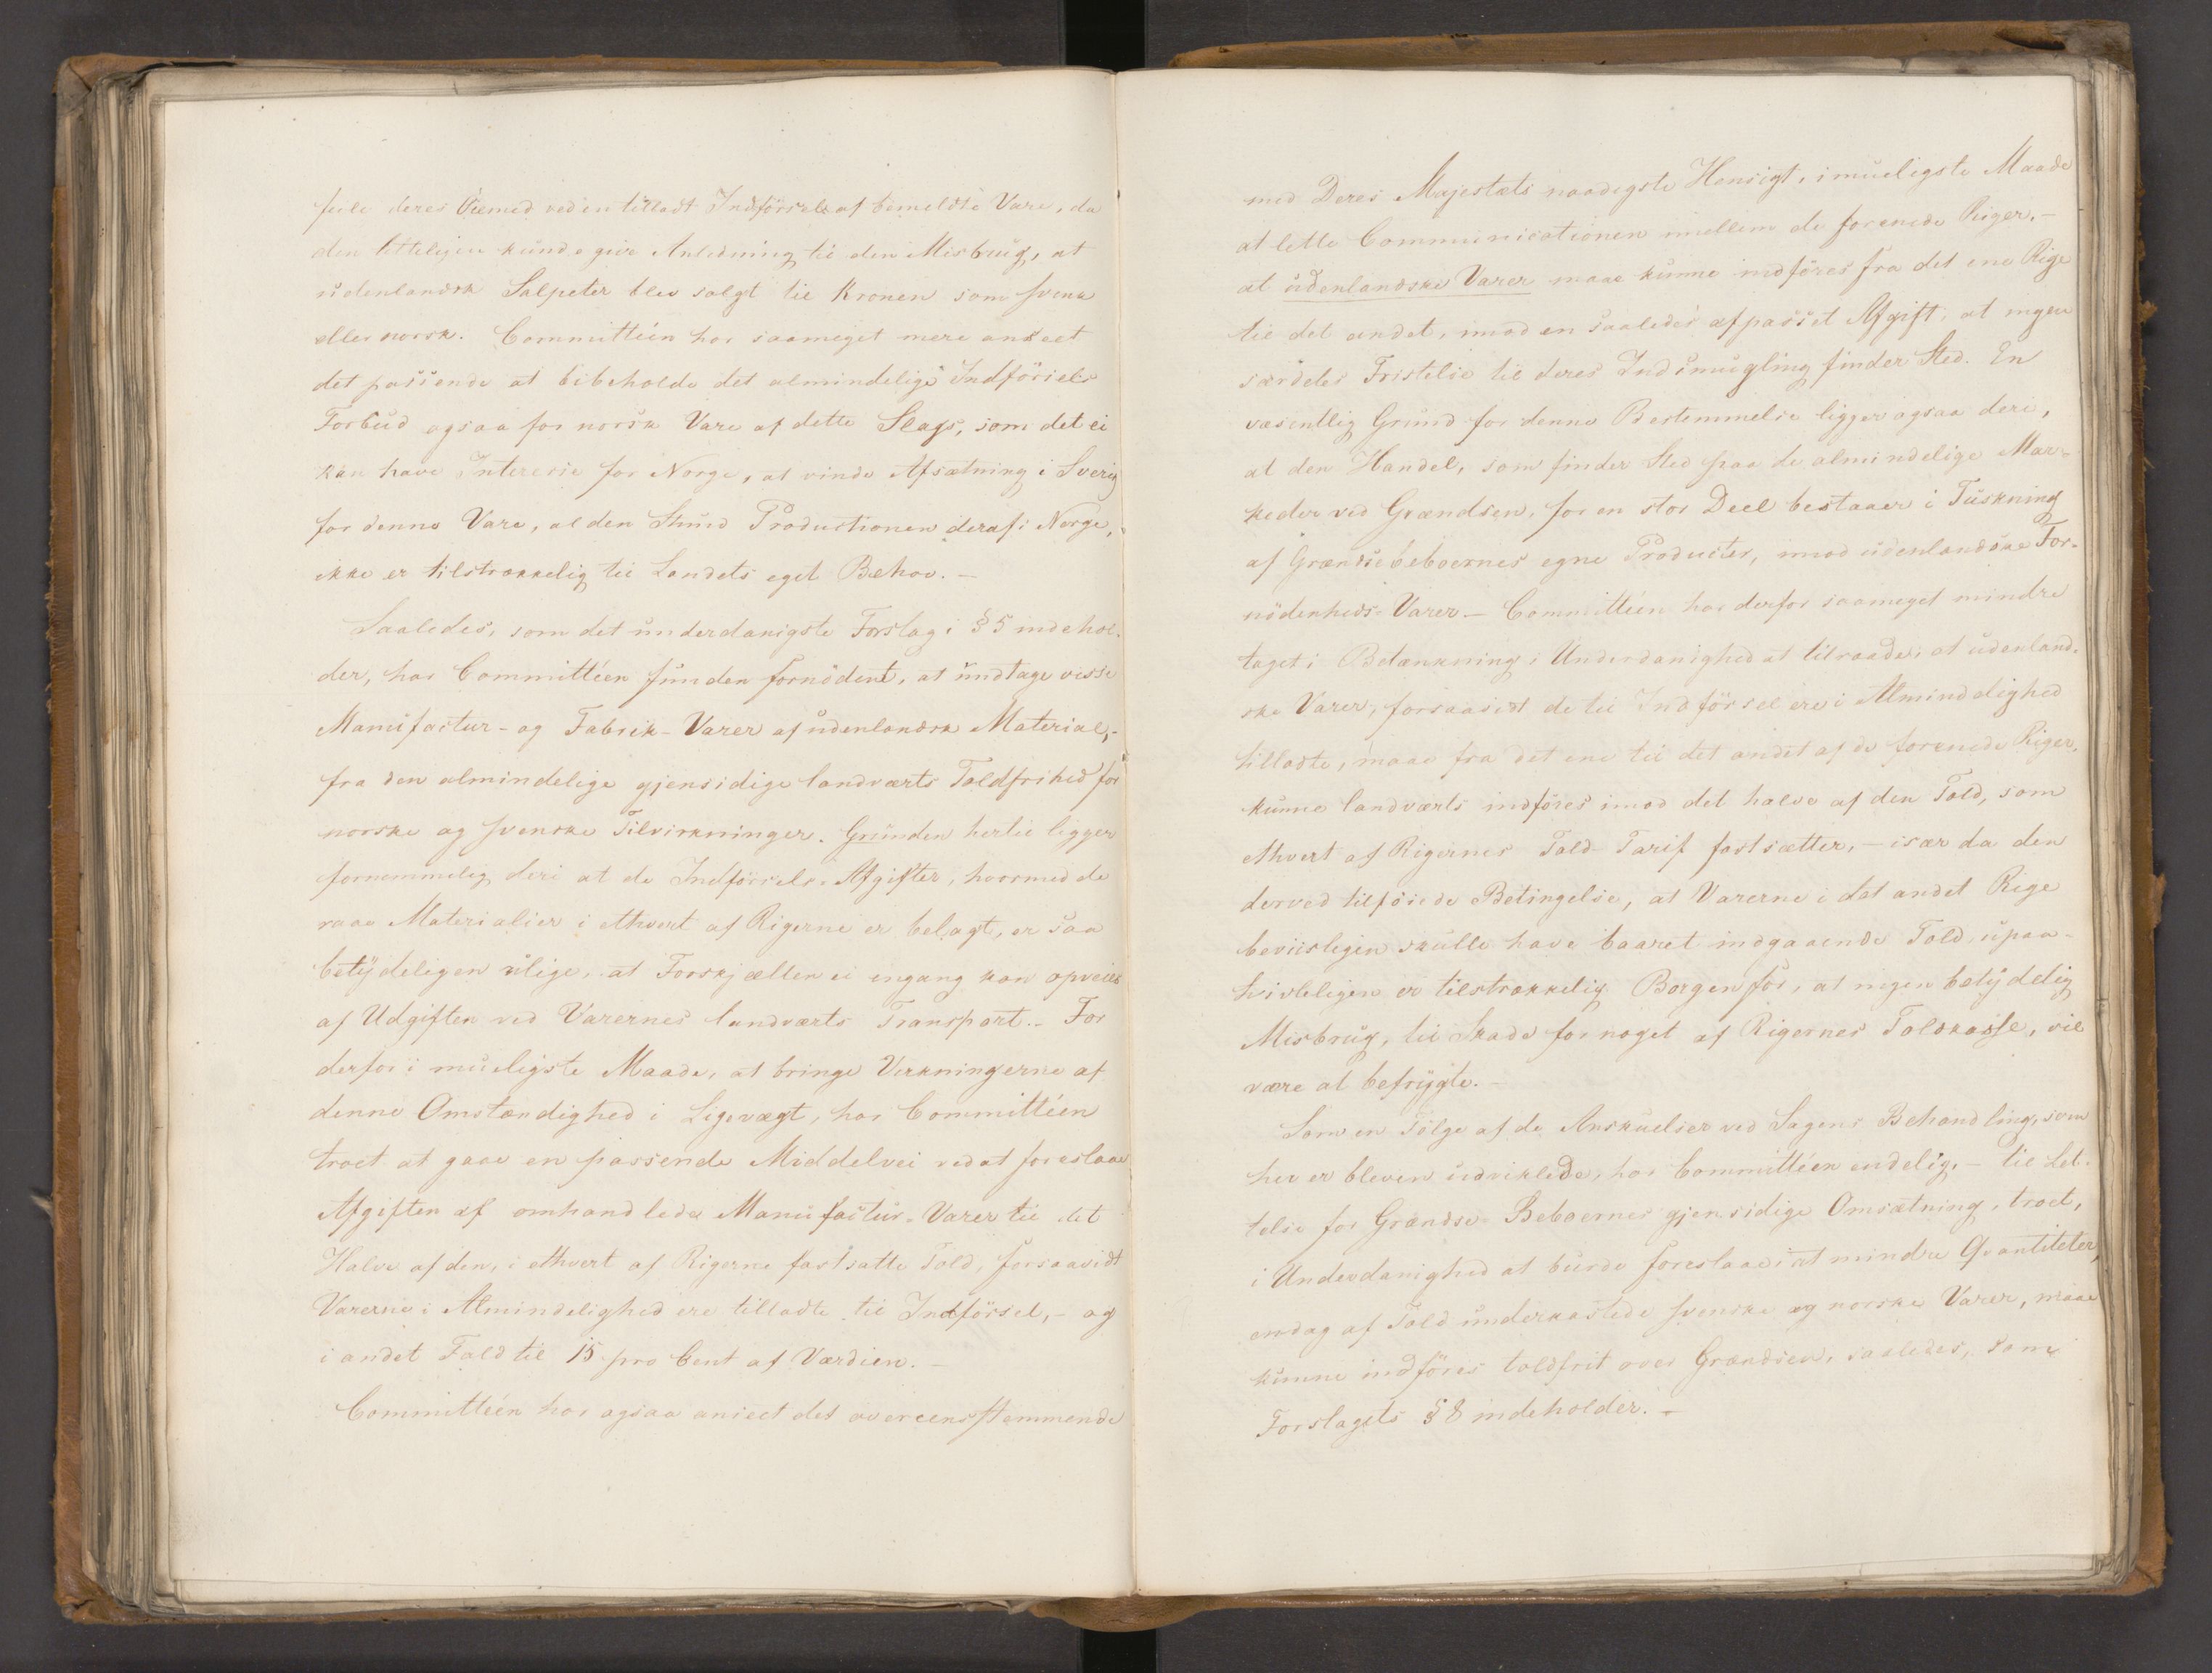 feile deres Öiemed ved en tilladt Indförsel af bemeldte Vare, da
den letteligen kunde give Anledning til den Misbrug, at
udenlandsk Salpeter blev solgt til Kronen som svensk
eller norsk. Committéen har saameget mere anseet
det passende at bibeholde det almindelige Indförsels
Forbud ogsaa for norsk Vare af dette Slags, som det ei
kan have Interesse for Norge, at vinde Afsætning i Sverig
for denne Vare, al den Stund Productionen deraf i Norge,
ikke er tilstrækkelig til Landets eget Behov. —
Saaledes, som det underdanigste Forslag i § 5 indehol-
der, har Committéen funden fornödent, at undtage visse
Manufactur- og Fabrik-Varer af udenlandsk Material,-
fra den almindelige gjensidige landværts Toldfrihed for
norske og svenske Tilvirkninger. Grunden hertil ligger
fornemmelig deri at de Indförsels-Afgifter, hvormed de
raae Materialier i ethvert af Rigerne er belagt, er saa
betydeligen ulige, at Forskjællen ei engang kan opveies
af Udgiften ved Varernes landværts Transport. — For
derfor i mueligste Maade, at bringe Virkningerne af
denne Omstændighed i Ligevægt, har Committéen
troet at gaae en passende Middelvei ved at foreslaae
Afgiften af omhandlede Manufactur-Varer til det
Halve af den, i ethvert af Rigerne fastsatte Told, forsaavidt
Varerne i Almindelighed ere tilladte til Indförsel, - og
i andet Fald til 15 pro Cent af Værdien. —
Committéen har ogsaa anseet det overeensstemmende
med Deres Majestæts naadigste Hensigt, i mueligste Maade
at lette Communicationen imellem de forenede Riger. —
at udenlandske Varer maae kunne indföres fra det ene Rige
til det andet, imod en saaledes afpasset Afgift, at ingen
særdeles Fristelse til deres Indsmugling finder Sted. En
væsentlig Grund for denne Bestemmelse ligger ogsaa deri,
at den Handel, som finder Sted paa de almindelige Mar-
keder ved Grændsen, for en stor Deel bestaaer i Tuskning
af Grændsebeboernes egne Producter, imod udenlandske For-
nödenheds-Varer — Committéen har derfor saameget mindre
taget i Betænkning i Underdanighed at tilraade, at udenland-
ske Varer, forsaavidt de til Indförsel ere i Almindelighed
tilladte, maae fra det ene til det andet af de forenede Riger,
kunne landværts indföres imod det halve af den Told, som
ethvert af Rigernes Told-Tarif fastsætter, — især da den
derved tilföiede Betingelse, at Varerne i det andet Rige
beviisligen skulle have baaret indgaaende Told, upaa-
tvivleligen er tilstrækkelig Borgen for, at ingen betydelig
Misbrug, til Skade for noget af Rigernes Toldkasse, vil
være at befrygte. —
Som en Fölge af de Anskuelser ved Sagens Behandling, som
her er bleven udviklede, har Committéen endelig, — til Let-
telse for Grændse-Beboernes gjensidige Omsætning, troet,
i Underdanighed at burde foreslaae at mindre Qvantiteter,
endog af Told underkastede svenske og norske Varer, maae
kunne indföres toldfrit over Grændsen, saaledes, som
Forslagets § 8 indeholder. —